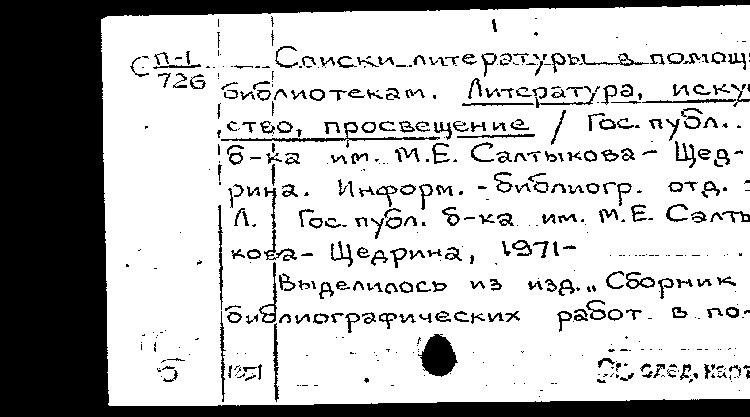 1
С П-1 Списки литературы в помощь
726 библиотекам. Литература, искус
ство, просвещение / Гос. публ.
б-ка им. М.Е. Салтыкова-Щед-
рина. Информ.-библиогр. отд. -
Л. Гос. публ. б-ка им. М.Е. Салты
кова-Щедрина, 1971-
Выделилось из изд. „Сборник
библиографических работ в по-
б
См. след. карт